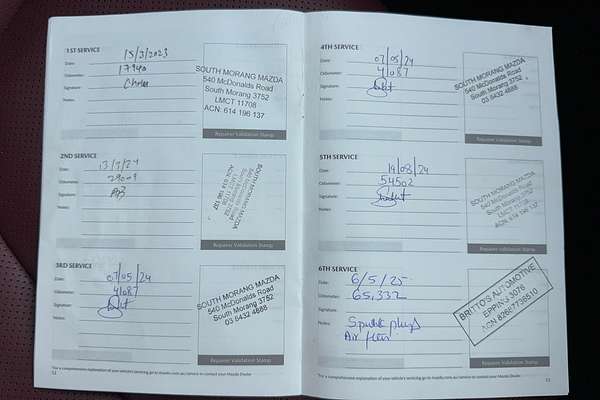 1ST SERVICE
Date: 15/3/2023
Odometer: 17940
Signature:
Notes:
SOUTH MORANG MAZDA
540 McDonalds Road
South Morang 3752
LMCT 11708
ACN: 614 196 137
Repairer Validation Stamp
2ND SERVICE
Date:
Odometer: 29009
Signature:
Notes:
SOUTH MORANG MAZDA
540 McDonalds Road
South Morang 3752
LMCT 11708
ACN 614 196 137
Repairer Validation Stamp
3RD SERVICE
Date: 07/05/24
Odometer: 41087
Signature:
Notes:
SOUTH MORANG MAZDA
540 McDonalds Road
South Morang 3752
03 8432 4888
Repairer Validation Stamp
For a comprehensive explanation of your vehicle's servicing go to mazda.com.au/service or contact your Mazda Dealer
12
4TH SERVICE
Date: 07/05/24
Odometer: 41087
Signature:
Notes:
SOUTH MORANG MAZDA
540 McDonalds Road
South Morang 3752
03 8432 4888
Repairer Validation Stamp
5TH SERVICE
Date: 19/08/24
Odometer: 54502
Signature:
Notes:
SOUTH MORANG MAZDA
540 McDonalds Road
South Morang 3752
LMCT 11708
ACN: 614 196 137
Repairer Validation Stamp
6TH SERVICE
Date: 6/5/25
Odometer: 65,332
Signature:
Notes: Spark plugs
Air filter
BRITTO'S AUTOMOTIVE
EPPING 3076
Repairer Validation Stamp
For a comprehensive explanation of your vehicle's servicing go to mazda.com.au/service or contact your Mazda Dealer
13